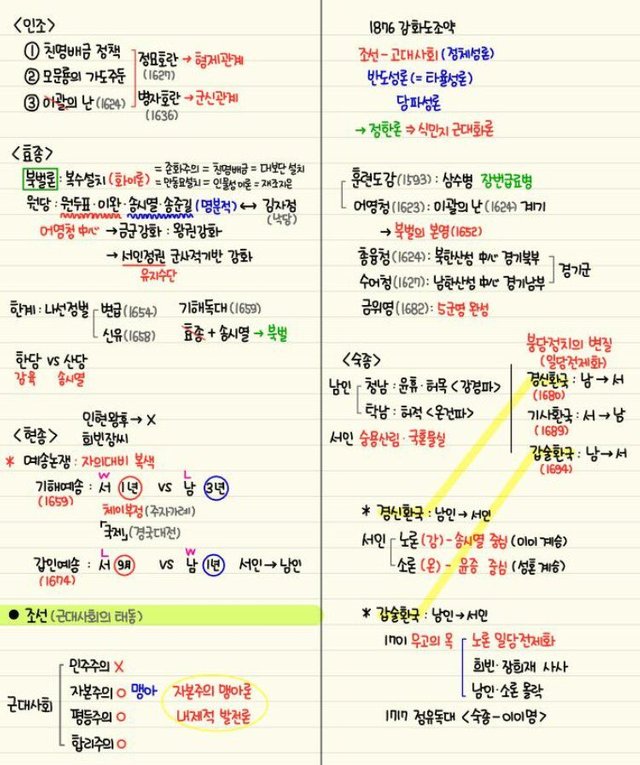 <인조>
① 친명배금 정책
② 모문룡의 가도주둔
③ 이괄의 난 (1624)
정묘호란 → 형제관계
(1627)
병자호란 → 군신관계
(1636)
<효종>
북벌론 : 복수설치 (화이론)
= 존화주의 = 친명배금 = 대보단 설치
= 만동묘설치 = 인물성이론 = 재조지은
원당 : 원두표·이완·송시열·송준길 (명분적) ↔ 김자점
(낙당)
어영청 中心 → 금군강화 : 왕권강화
→ 서인정권 군사적기반 강화
유지수단
한계 : 나선정벌
변급 (1654)
신유 (1658)
기해독대 (1659)
효종 + 송시열 → 북벌
한당 vs 산당
김육 송시열
인현왕후 → X
희빈장씨
<현종>
* 예송논쟁 : 자의대비 복색
기해예송 : 서 1년 vs 남 3년
W L
(1659)
체이부정 (주자가례)
「국제」 (경국대전)
갑인예송 : 서 9月 vs 남 1년 서인 → 남인
L W
(1674)
● 조선 (근대사회의 태동)
근대사회
민주주의 X
자본주의 O 맹아
평등주의 O
합리주의 O
자본주의 맹아론
내재적 발전론
1876 강화도조약
조선 - 고대사회 (정체성론)
반도성론 (= 타율성론)
당파성론
→ 정한론 ⇒ 식민지 근대화론
훈련도감 (1593) : 삼수병 장번급료병
어영청 (1623) : 이괄의 난 (1624) 계기
→ 북벌의 본영 (1652)
총융청 (1624) : 북한산성 中心 경기북부
수어청 (1627) : 남한산성 中心 경기남부
경기군
금위영 (1682) : 5군영 완성
<숙종>
남인
청남 : 윤휴·허목 <강경파>
탁남 : 허적 <온건파>
서인 숭용산림·국혼물실
붕당정치의 변질
(일당전제화)
경신환국 : 남 → 서
(1680)
기사환국 : 서 → 남
(1689)
갑술환국 : 남 → 서
(1694)
* 경신환국 : 남인 → 서인
서인
노론 (강) - 송시열 중심 (이이 계승)
소론 (온) - 윤증 중심 (성혼 계승)
* 갑술환국 : 남인 → 서인
1701 무고의 옥
노론 일당전제화
희빈·장희재 사사
남인·소론 몰락
1717 정유독대 <숙종-이이명>